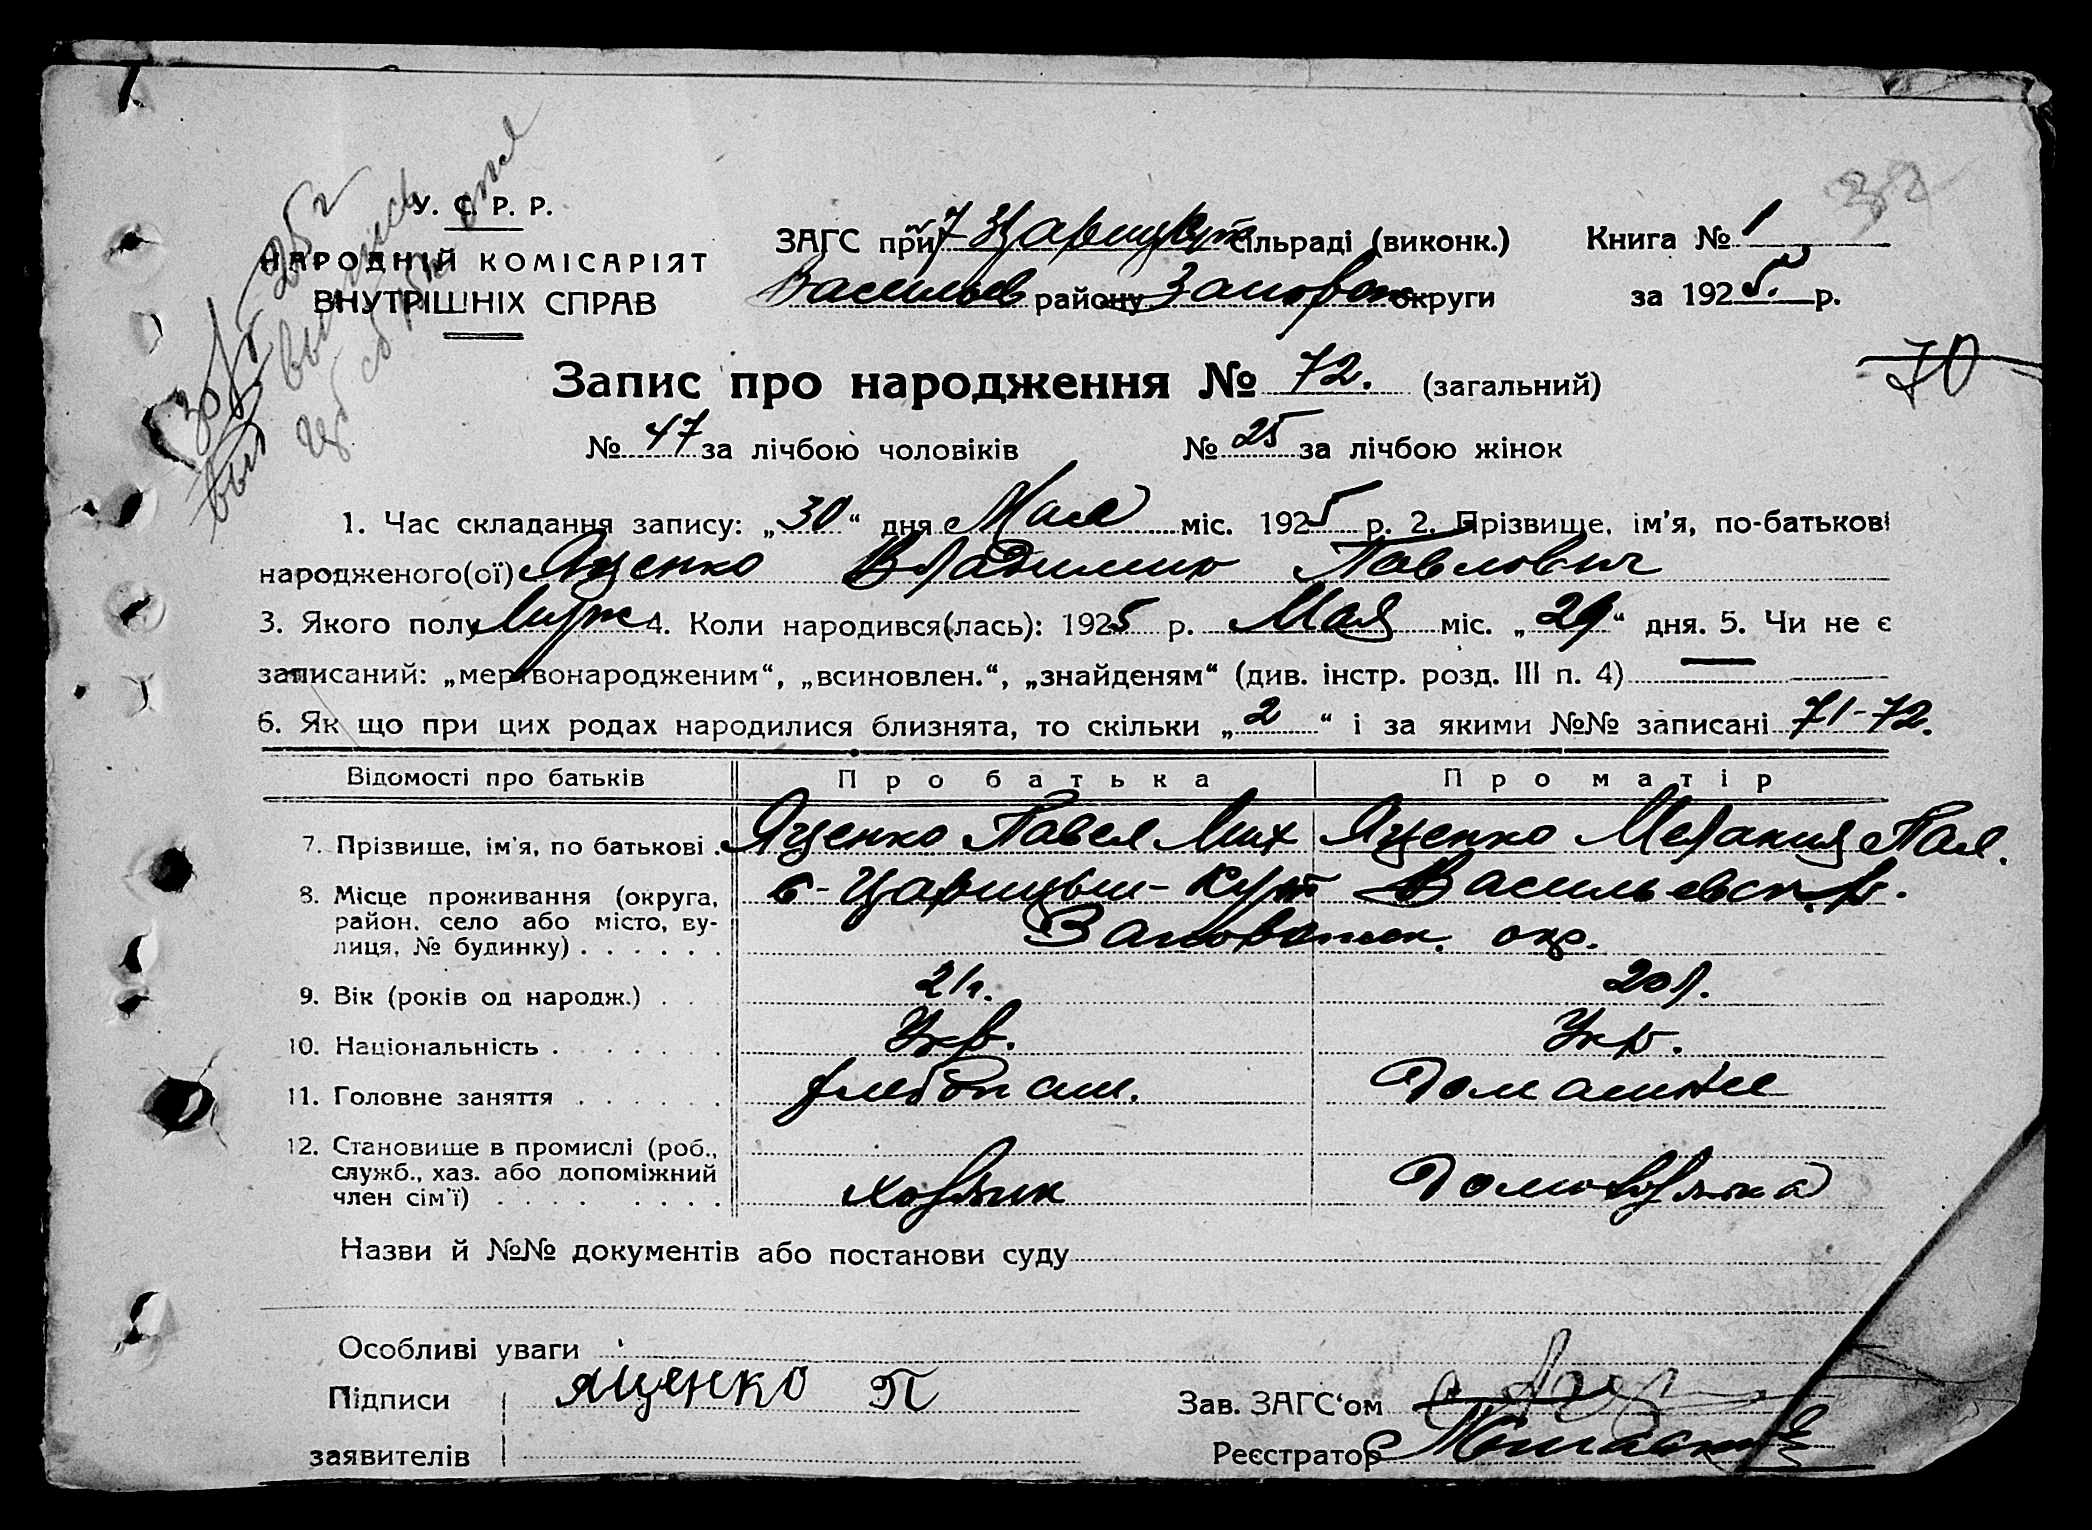 У. С. Р. Р.
НАРОДНІЙ КОМІСАРІЯТ
ВНУТРІШНІХ СПРАВ
ЗАГС при Царицкут сільраді (виконк.)
Васильев району Запорож округи
Книга № 1
за 1925 р.
70
Запис про народження № 72. (загальний)
№ 47 за лічбою чоловіків № 25 за лічбою жінок
1. Час складання запису: „30“ дня Мая міс. 1925 р. 2. Прізвище, ім'я, по-батькові
народженого(ої) Яценко Владимир Павлович
3. Якого полу Муж 4. Коли народився(лась): 1925 р. Мая міс. „29“ дня. 5. Чи не є
записаний: „мертвонародженим“, „всиновлен.“, „знайденям“ (див. інстр. розд. III п. 4) —
6. Як що при цих родах народилися близнята, то скільки „2“ і за якими №№ записані 71-72.
Відомості про батьків Про батька Про матір
7. Прізвище, ім'я, по батькові . Яценко Павел Мих Яценко Мелания Пал.
8. Місце проживання (округа,
район, село або місто, ву-
лиця, № будинку) . . . . . .
с- Царицын- Кут Васильевск. р.
Запорож. окр.
9. Вік (років од народж.) . . 21 л. 20 л.
10. Національність . . . . . . . Укр. Укр.
11. Головне заняття . . . . . . хлебопаш. Домашнее
12. Становище в промислі (роб.,
служб., хаз. або допоміжний
член сім'ї) . . . . . . . .
хозяин Домохозяйка
Назви й №№ документів або постанови суду
Особливі уваги
Підписи заявителів
Яценко П
Зав. ЗАГС'ом
Реєстратор